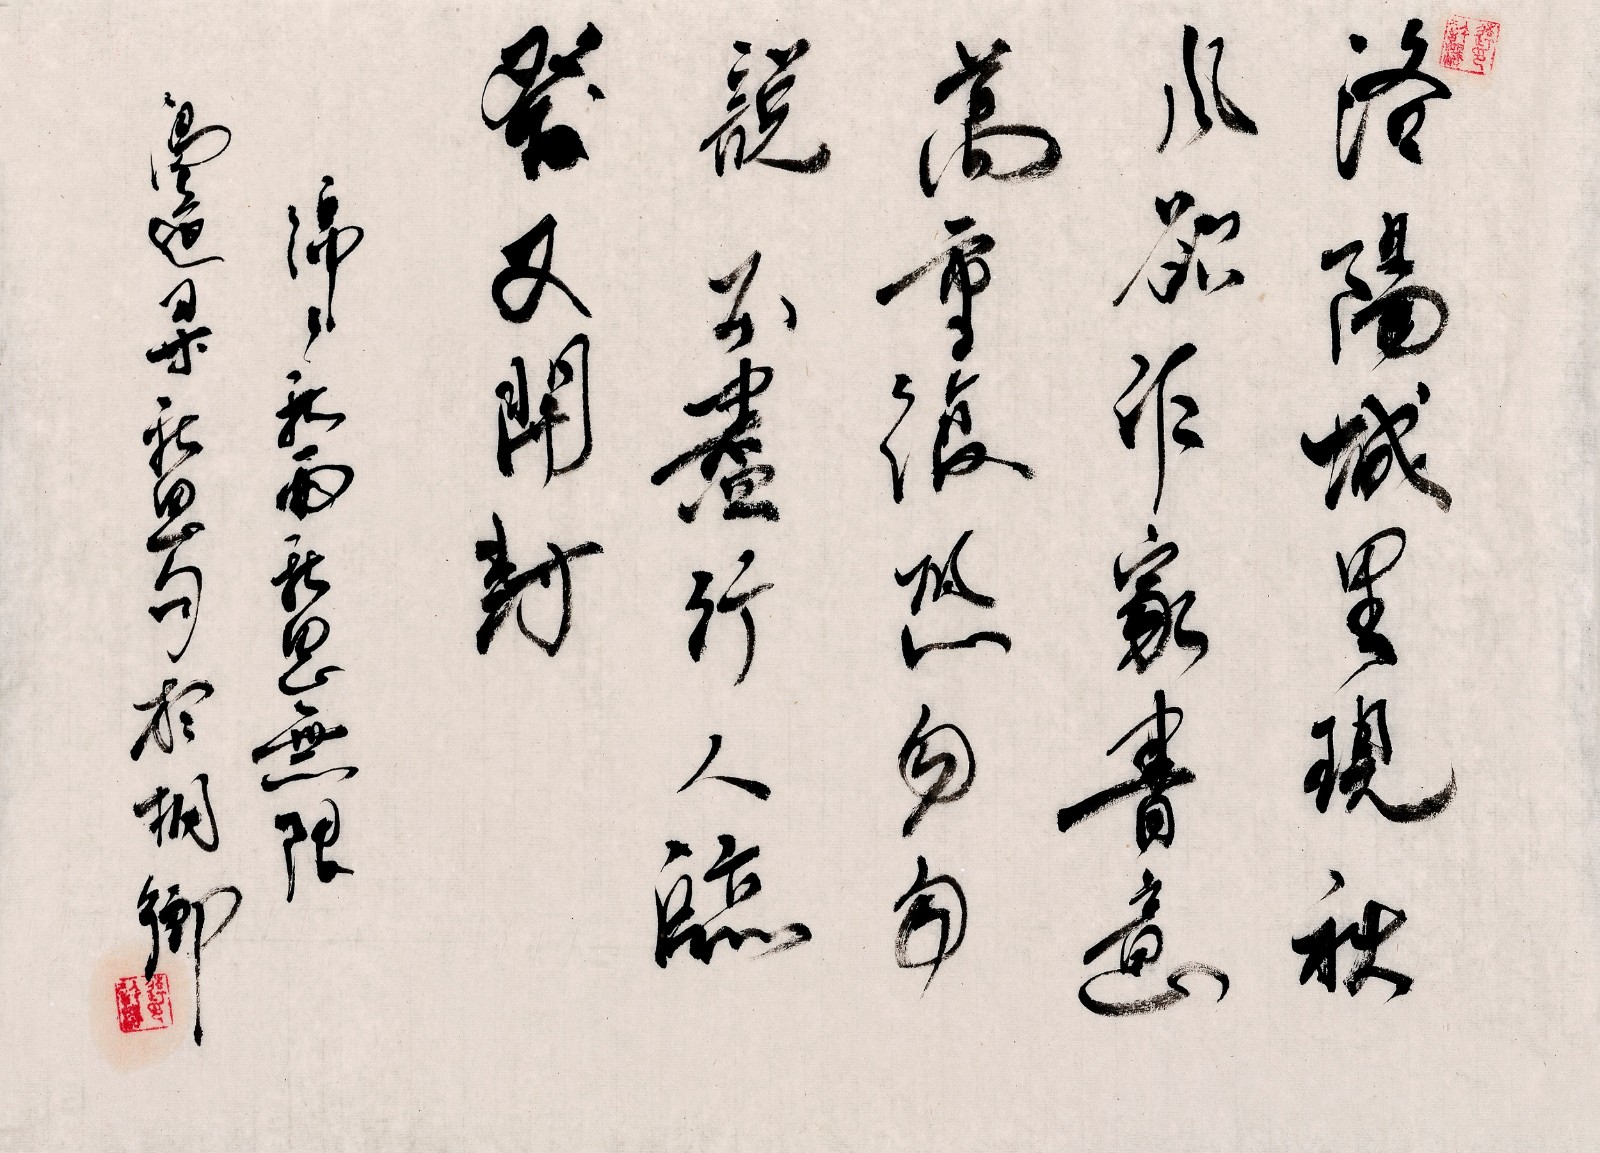 洛陽城里現秋
風欲作家書意
萬重復恐匆匆
說不盡行人臨
發又開封
綿々秋雨秋思無限
寫遊果秋思句於桐鄉